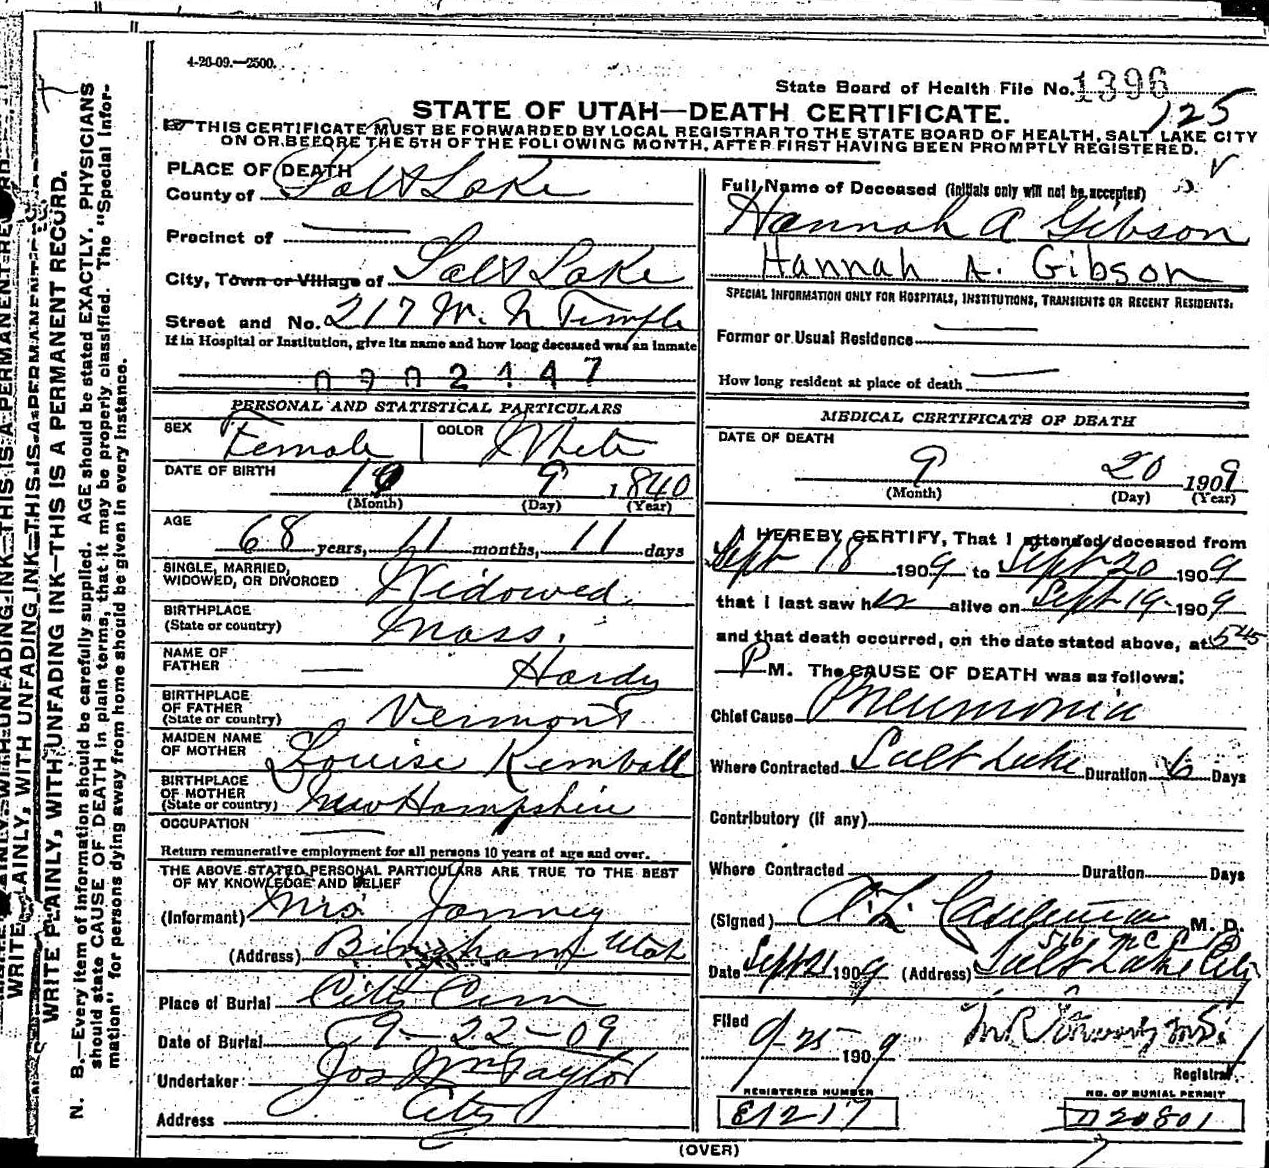 4-20-09.—2500.
State Board of Health File No. 1396
125
STATE OF UTAH—DEATH CERTIFICATE.
THIS CERTIFICATE MUST BE FORWARDED BY LOCAL REGISTRAR TO THE STATE BOARD OF HEALTH, SALT LAKE CITY
ON OR BEFORE THE 5TH OF THE FOLLOWING MONTH, AFTER FIRST HAVING BEEN PROMPTLY REGISTERED.
WRITE PLAINLY, WITH UNFADING INK—THIS IS A PERMANENT RECORD.
N. B.—Every item of information should be carefully supplied. AGE should be stated EXACTLY. PHYSICIANS
should state CAUSE OF DEATH in plain terms, that it may be properly classified. The "Special Infor-
mation" for persons dying away from home should be given in every instance.
PLACE OF DEATH
County of Salt Lake
Precinct of —
City, Town or Village of Salt Lake
Street and No. 217 W. N Temple
If in Hospital or Institution, give its name and how long deceased was an inmate
2147
PERSONAL AND STATISTICAL PARTICULARS
SEX Female COLOR White
DATE OF BIRTH
10 9 1840
(Month) (Day) (Year)
AGE
68 years, 11 months, 11 days
SINGLE, MARRIED,
WIDOWED, OR DIVORCED Widowed
BIRTHPLACE
(State or country) Mass.
NAME OF
FATHER — Hardy
BIRTHPLACE
OF FATHER
(State or country) Vermont
MAIDEN NAME
OF MOTHER Louise Kemball
BIRTHPLACE
OF MOTHER
(State or country) New Hampshire
OCCUPATION —
Return remunerative employment for all persons 10 years of age and over.
THE ABOVE STATED PERSONAL PARTICULARS ARE TRUE TO THE BEST
OF MY KNOWLEDGE AND BELIEF
(Informant) Mrs. Janney
(Address) Bingham Utah
Place of Burial City Cem
Date of Burial 9-22-09
Undertaker Jos Wm Taylor
Address City
Full Name of Deceased (initials only will not be accepted)
Hannah A Gibson
Hannah A. Gibson
SPECIAL INFORMATION ONLY FOR HOSPITALS, INSTITUTIONS, TRANSIENTS OR RECENT RESIDENTS:
Former or Usual Residence —
How long resident at place of death —
MEDICAL CERTIFICATE OF DEATH
DATE OF DEATH
9 20 1909
(Month) (Day) (Year)
I HEREBY CERTIFY, That I attended deceased from
Sept 18 1909 to Sept 20 1909
that I last saw her alive on Sept 19 1909
and that death occurred, on the date stated above, at 5 45
P M. The CAUSE OF DEATH was as follows:
Chief Cause Pneumonia
Where Contracted Salt Lake Duration 6 Days
Contributory (if any)
Where Contracted Duration Days
(Signed) A. L. M. D.
516 McC
Date Sept 21 1909 (Address) Salt Lake City
Filed
9-25- 1909
Registrar
REGISTERED NUMBER
E1217
NO. OF BURIAL PERMIT
D20801
(OVER)